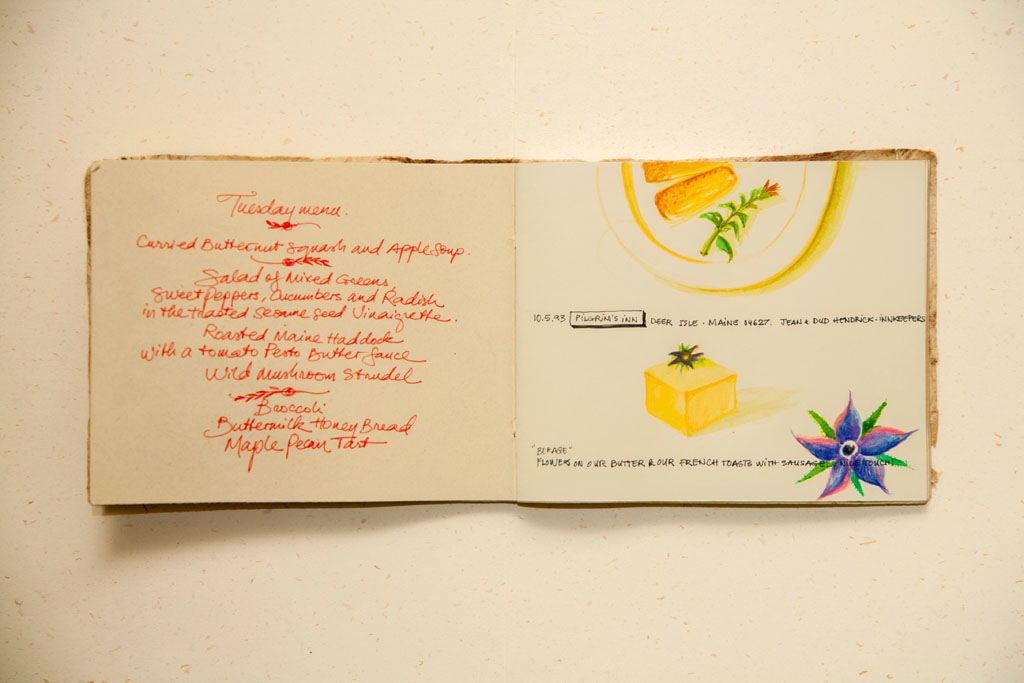 Tuesday menu.
Curried Butternut Squash and Apple Soup.
Salad of Mixed Greens,
Sweet Peppers, Cucumbers and Radish
in the toasted Sesame Seed Vinaigrette.
Roasted Maine Haddock
with a tomato Pesto Butter Sauce
Wild Mushroom Strudel
Broccoli
Buttermilk Honey Bread
Maple Pecan Tart
10.5.93 PILGRIM'S INN DEER ISLE · MAINE 04627. JEAN & DUD HENDRICK · INNKEEPERS
"BORAGE"
FLOWERS ON OUR BUTTER & OUR FRENCH TOASTS WITH SAUSAGE. NICE TOUCH!